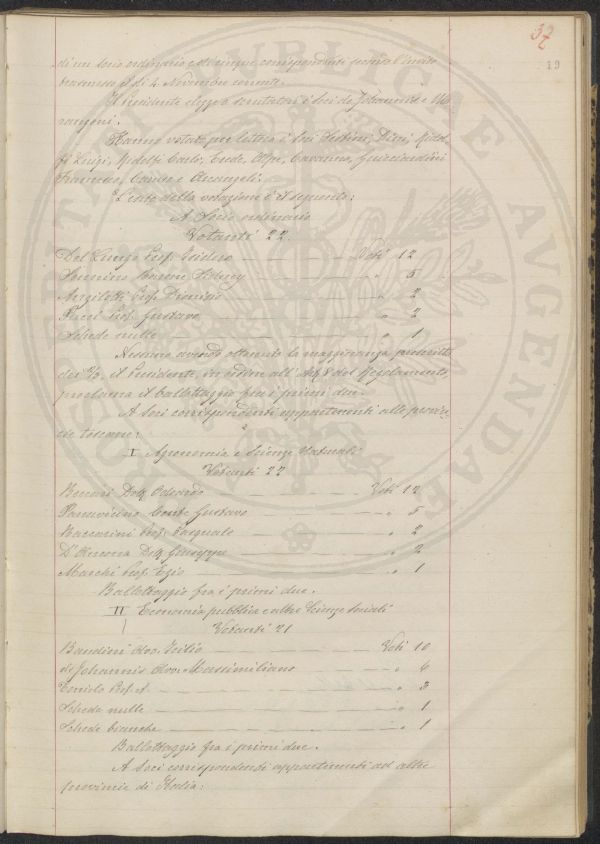 37
19
di un socio ordinario e di cinque corrispondenti secondo l'invito
trasmesso il dì 4 Novembre corrente.
Il Presidente elegge a scrutatori i soci de Johannis e Ma-
rangoni.
Hanno votato per lettera i Soci Sestini, Ridol-
fi Luigi, Ridolfi Carlo, Alpe, Caravina, Guicciardini
Francesco, e Arcangeli.
L'esito della votazione è il seguente:
A Socio ordinario
Votanti 22.
Del Lungo Prof. Isidoro — Voti 12
Sonnino Barone Sidney — " 5
Angiletti Prof. Dionisio — " 2
Pucci Prof. Gustavo — " 2
Schede nulle — " 1
Nessuno avendo ottenuto la maggioranza prescritta
dei 2/3, il Presidente, in ordine all'Art. 8 del Regolamento,
proclama il ballottaggio fra i primi due.
A Soci corrispondenti appartenenti alle provin-
cie toscane:
I Agronomia e Scienze Naturali
Votanti 22
Beccari Dott. Odoardo — Voti 12
Conte Gustavo — " 5
Baccarini Prof. Pasquale — " 2
D'Ancona Dott. Giuseppe — " 2
Marchi Prof. Ezio — " 1
Ballottaggio fra i primi due.
II Economia pubblica e altre Scienze Sociali
Votanti 21
Bandini Avv. Icilio — Voti 10
de Johannis Avv. Massimiliano — " 6
Toniolo Prof. A. — " 3
Schede nulle — " 1
Schede bianche — " 1
Ballottaggio fra i primi due.
A Soci corrispondenti appartenenti ad altre
provincie di Italia: